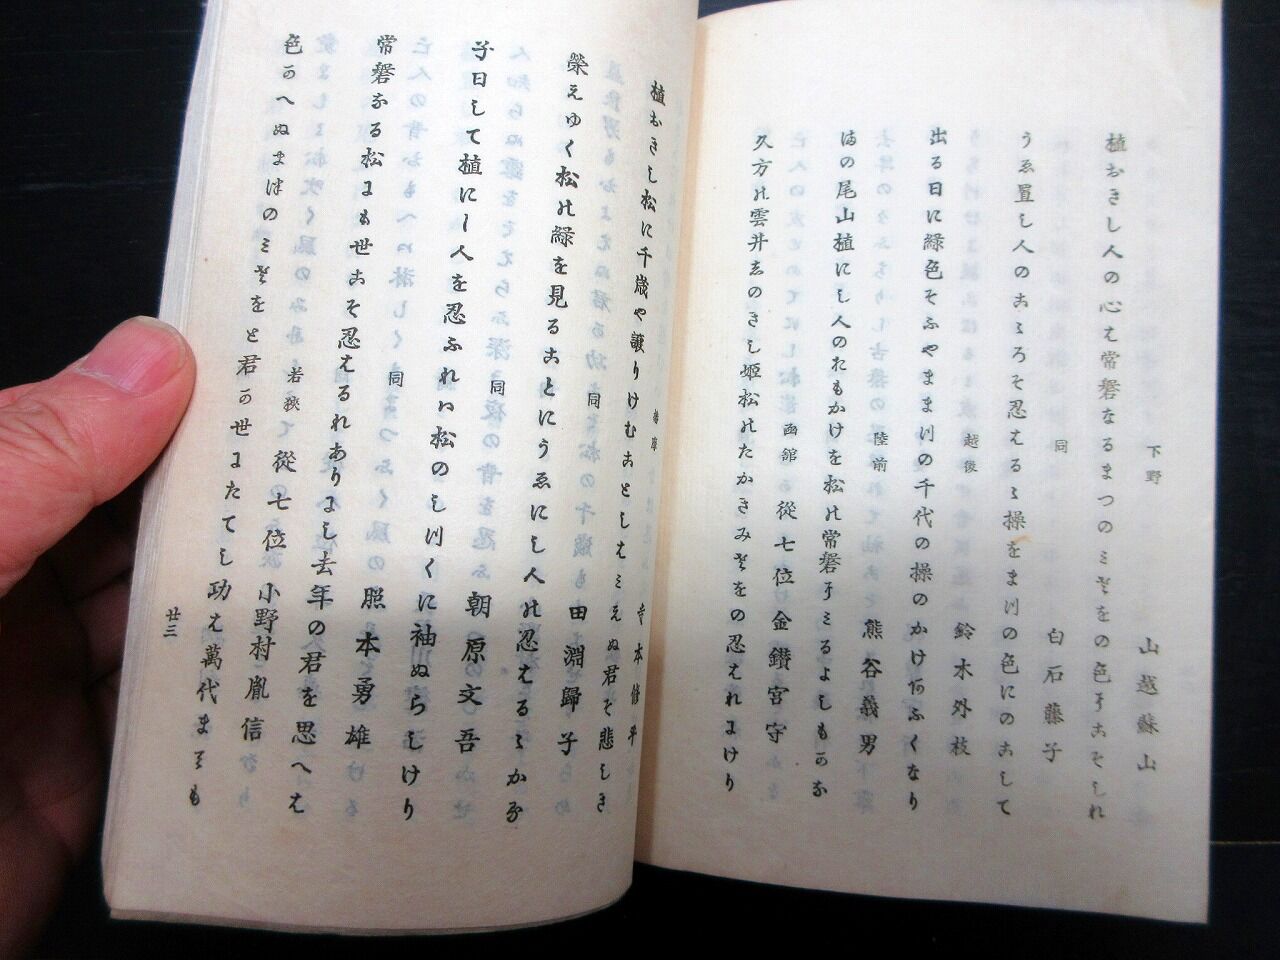 下野 山越蘇山
植おきし人の心は常磐なるまつのミさをの色にこそしれ
同 白石藤子
うゑ置し人のこゝろそ忍はるゝ操をま川の色にのこして
越後 鈴木外枝
出る日に緑色そふやままつの千代の操のかけあふくなり
陸前 熊谷義男
はの尾山植にし人のたもかけを松の常磐にミるよしもかな
函館 従七位 金鑚宮守
久方の雲井志のきし姫松のたかきみさをの忍はれにけり
播磨 寺本修平
植おきし松に千歳や譲りけむことしはミえぬ君そ悲しき
同 田淵歸子
榮えゆく松の緑を見ることにうゑにし人の忍はるゝかな
同 朝原文吾
子日して植にし人を忍ふれハ松のしつくに袖ぬらしけり
同 照本勇雄
常磐なる松にも世こそ忍はるれありにし去年の君を思へは
若狹 從七位 小野村胤信
色かへぬまつのミさをと君か世にたてし功は萬代まても
廿三